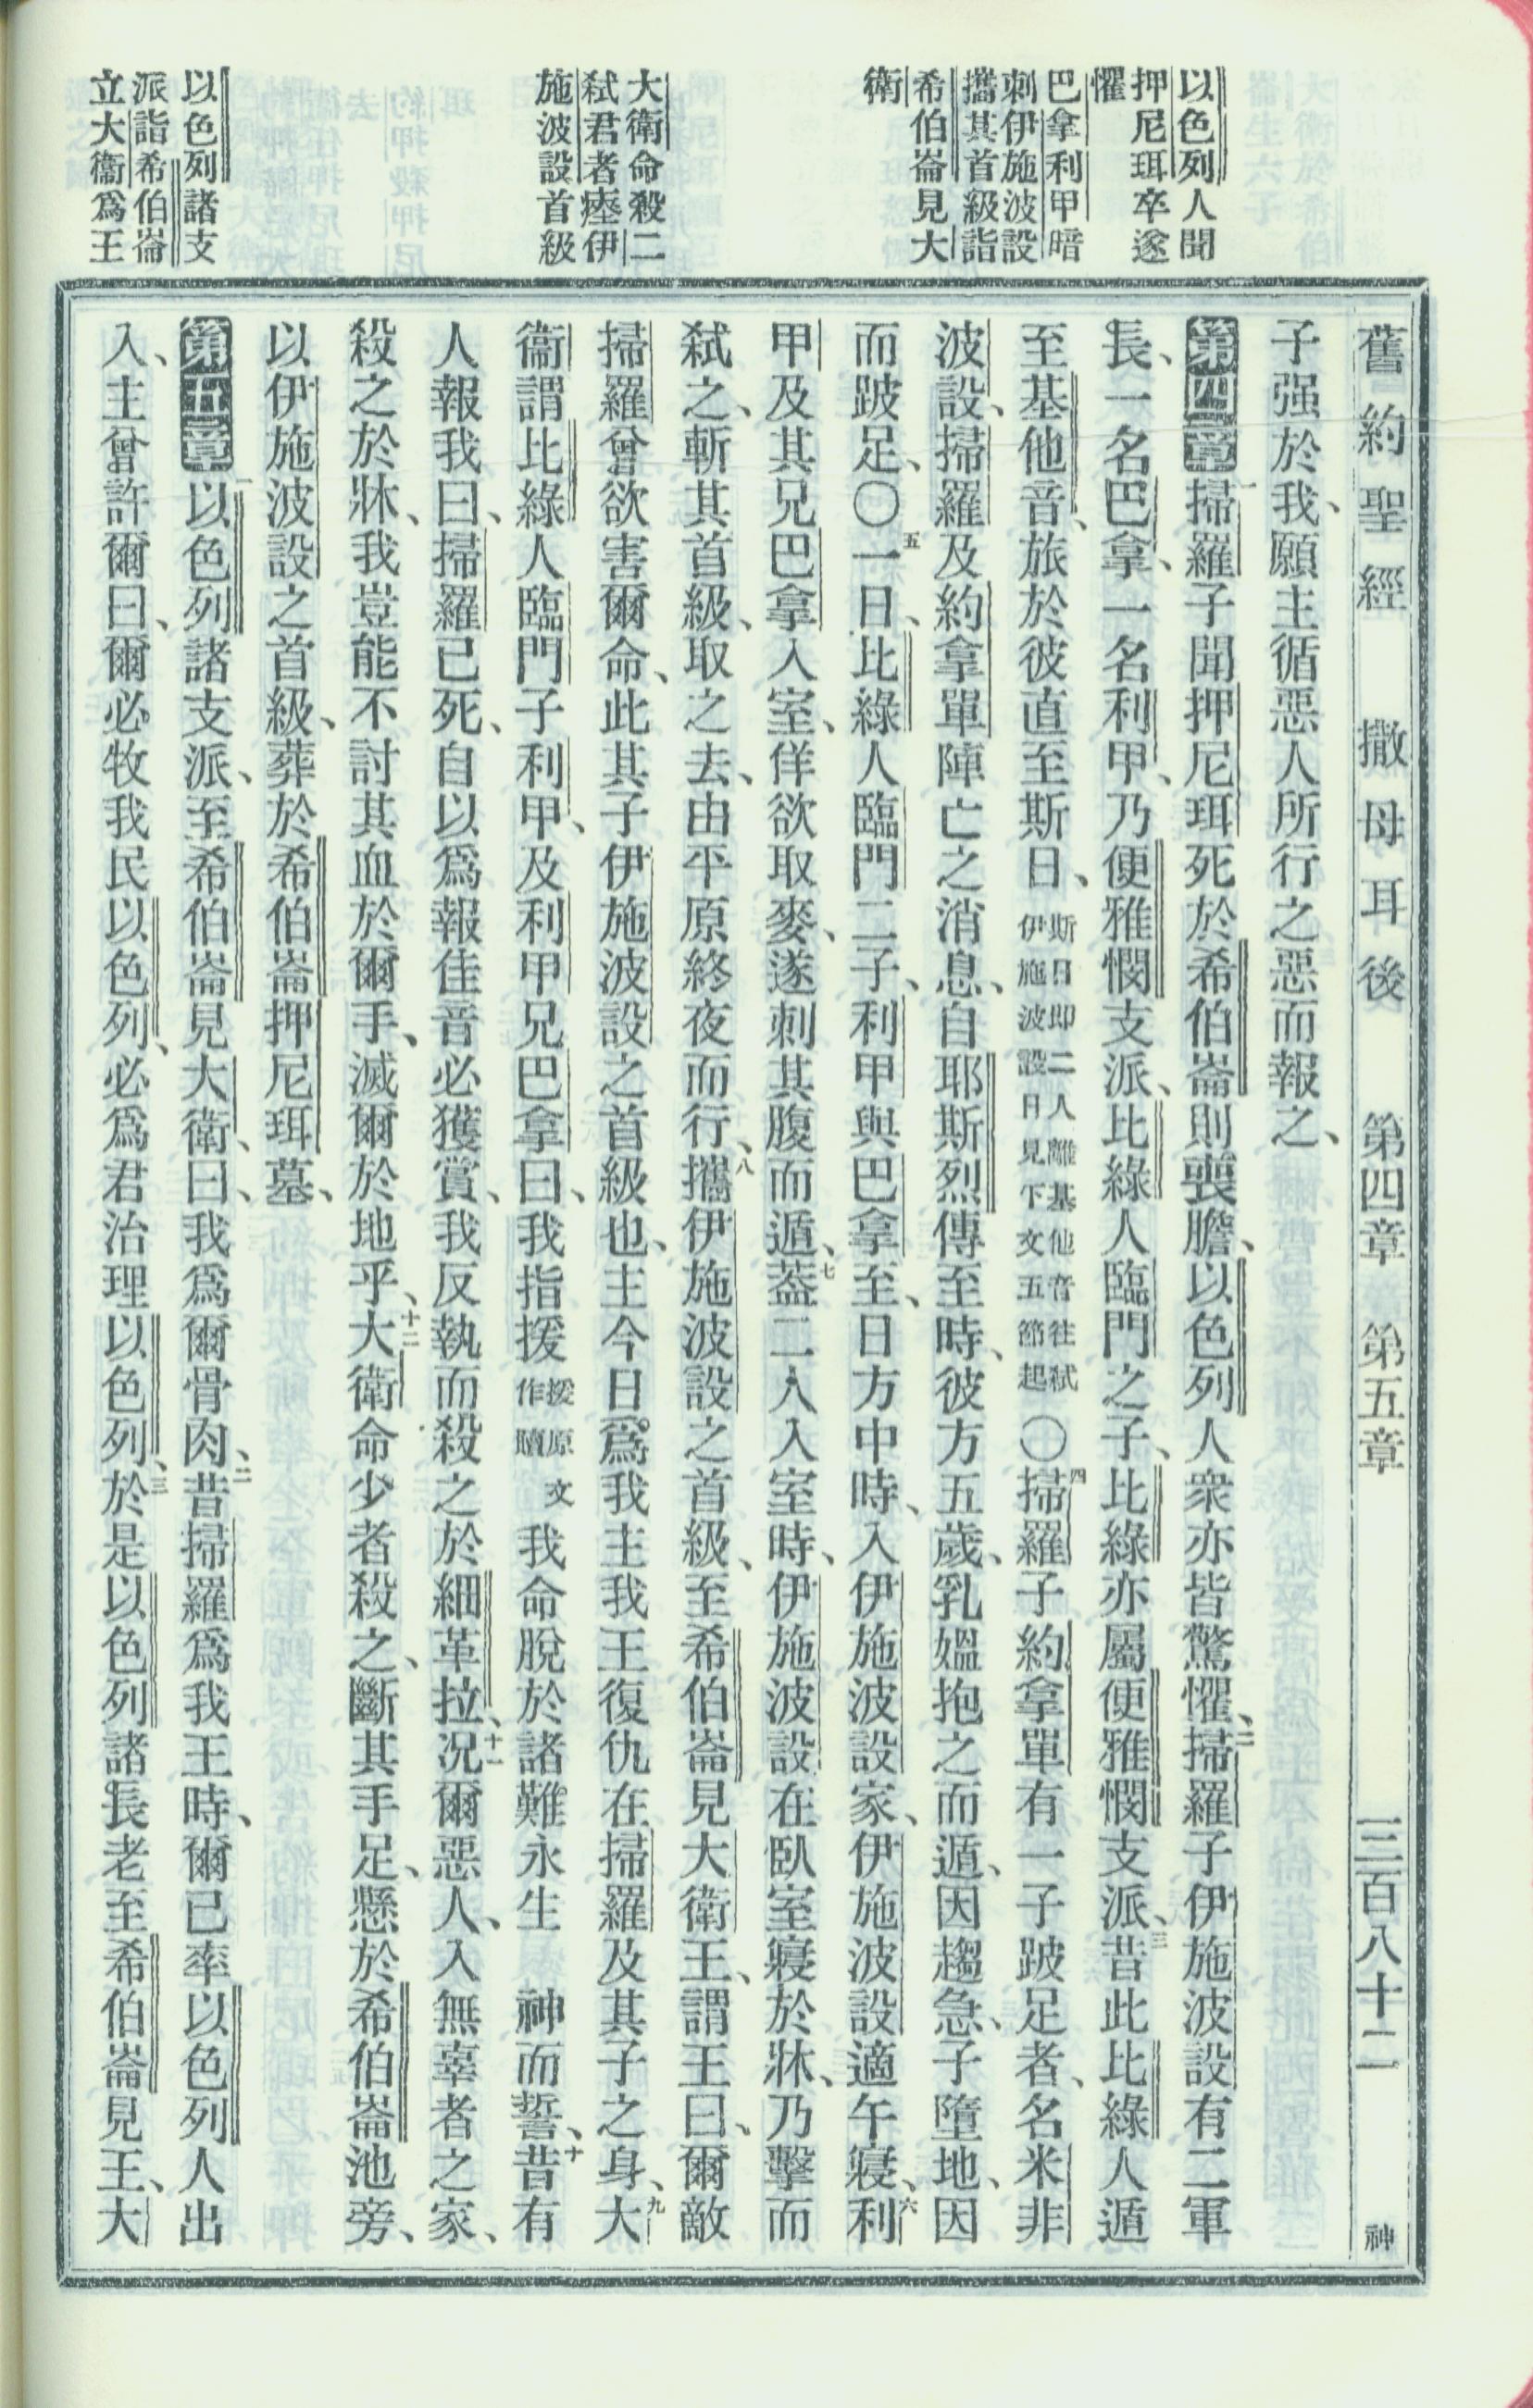 舊約聖經 撒母耳後 第四章 第五章 三百八十二 神
以色列人聞
押尼珥卒遂
懼
巴拿利甲暗
刺伊施波設
攜其首級詣
希伯崙見大
衛
大衛命殺二
弑君者瘞伊
施波設首級
以色列諸支
派詣希伯崙
立大衞爲王
子强於我、願主循惡人所行之惡而報之、
第四章 一掃羅子聞押尼珥死於希伯崙則喪膽、以色列人衆亦皆驚懼、二掃羅子伊施波設有二軍
長、一名巴拿、一名利甲、乃便雅憫支派、比綠人臨門之子、比綠亦屬便雅憫支派、三昔此比綠人遁
至基他音、旅於彼直至斯日、斯日即二人離基他音往弑伊施波設日見下文五節起〇四掃羅子約拿單有一子跛足者、名米非
波設、掃羅及約拿單陣亡之消息、自耶斯烈傳至時、彼方五歲、乳媼抱之而遁、因趨急、子墮地、因
而跛足、〇五一日、比綠人臨門二子、利甲與巴拿至、日方中時、入伊施波設家、伊施波設適午寢、六利
甲及其兄巴拿入室、佯欲取麥、遂刺其腹而遁、七蓋二人入室時、伊施波設在臥室寢於牀、乃擊而
弑之、斬其首級、取之去、由平原終夜而行、八攜伊施波設之首級、至希伯崙見大衛王、謂王曰、爾敵
掃羅曾欲害爾命、此其子伊施波設之首級也、主今日爲我主我王復仇在掃羅及其子之身、九大
衞謂比綠人臨門子利甲、及利甲兄巴拿曰、我指援援原文作贖我命脫於諸難永生 神而誓、十昔有
人報我曰、掃羅已死、自以爲報佳音必獲賞、我反執而殺之於細革拉、十一况爾惡人、入無辜者之家、
殺之於牀、我豈能不討其血於爾手、滅爾於地乎、十二大衛命少者殺之、斷其手足、懸於希伯崙池旁、
以伊施波設之首級、葬於希伯崙押尼珥墓、
第五章 一以色列諸支派、至希伯崙見大衛、曰、我爲爾骨肉、二昔掃羅爲我王時、爾已率以色列人出
入、主曾許爾曰、爾必牧我民以色列、必爲君治理以色列、三於是以色列諸長老至希伯崙見王、大